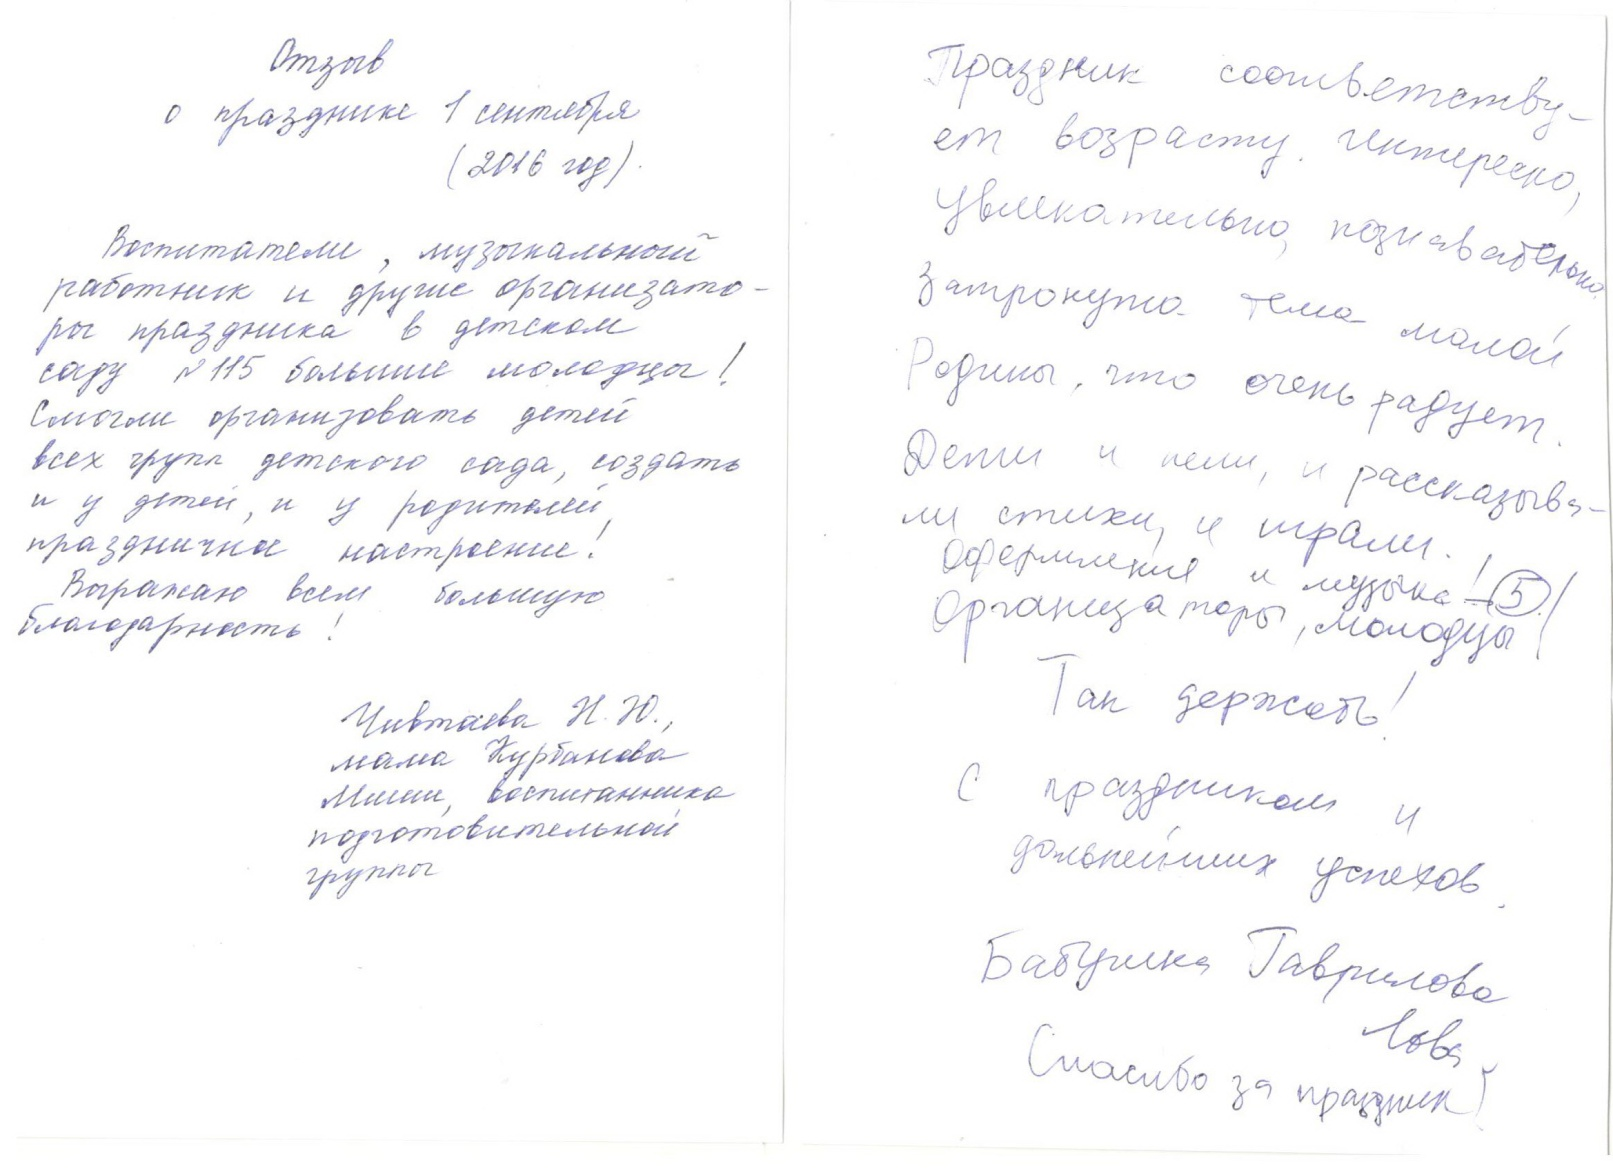 Отзыв
о празднике 1 сентября
(2016 год).
Воспитатели, музыкальный
работник и другие организато-
ры праздника в детском
саду №115 большие молодцы!
Смогли организовать детей
всех групп детского сада, создать
и у детей, и у родителей
праздничное настроение!
Выражаю всем большую
благодарность!
Чивтаева Н.Ю.,
мама Курбанова
Миши, воспитанника
подготовительной
группы
Праздник соответству-
ет возрасту. Интересно,
увлекательно, познавательно.
Затронута тема малой
Родины, что очень радует.
Дети и пели, и рассказыва-
ли стихи, и играли.
Оформление и музыка! – 5!
Организаторы, молодцы!
Так держать!
С праздником и
дальнейших успехов.
Бабушка Гаврилова
Лёва
Спасибо за праздник!